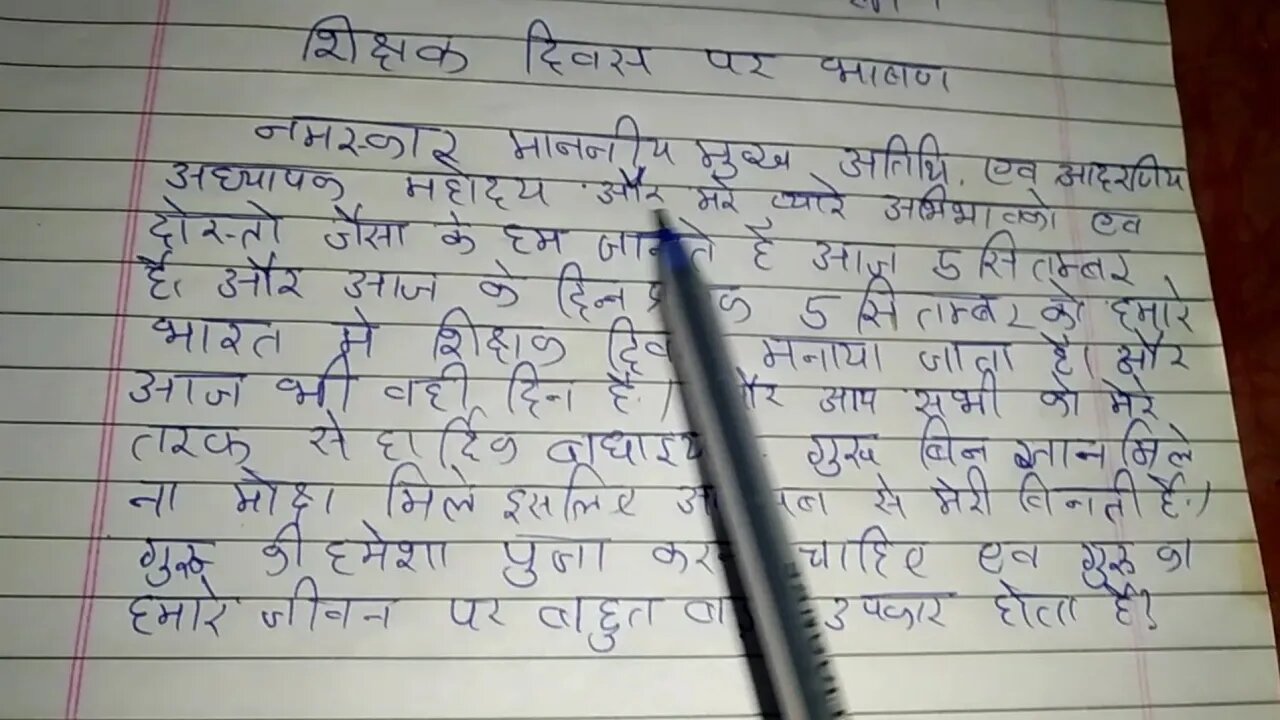 शिक्षक दिवस पर भाषण
नमस्कार माननीय मुख्य अतिथि, एव आदरणिय
अध्यापक महोदय और मेरे प्यारे अभिभावको एव
दोस्तो जैसा के हम जानते है आज 5 सितम्बर
है। और आज के दिन 5 सितम्बर को हमारे
भारत मे शिक्षक मनाया जाता है। और
आज भी वही दिन है। आप सभी को मेरे
तरफ से हार्दिक गुरू बिन ज्ञान मिले
ना मोक्ष मिले इसलिए से मेरी बिनती है।
गुरू की हमेशा पुजा चाहिए एव गुरू का
हमारे जीवन पर बाहुत उपकार होता है?